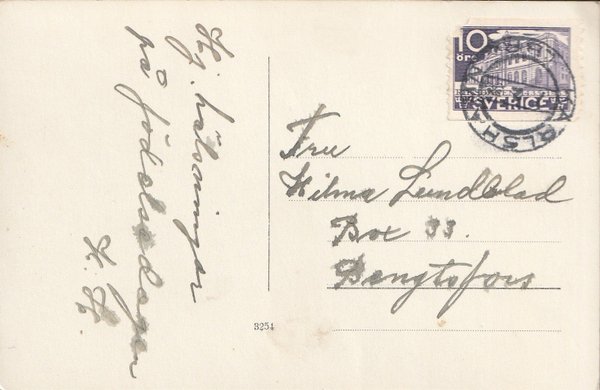 Hj. hälsningar
på födelsedagen
H. H.
3254
10
öre
SVERIGE
KARLSHAMN
Fru
Hilma Lundblad
Box 33.
Bengtsfors